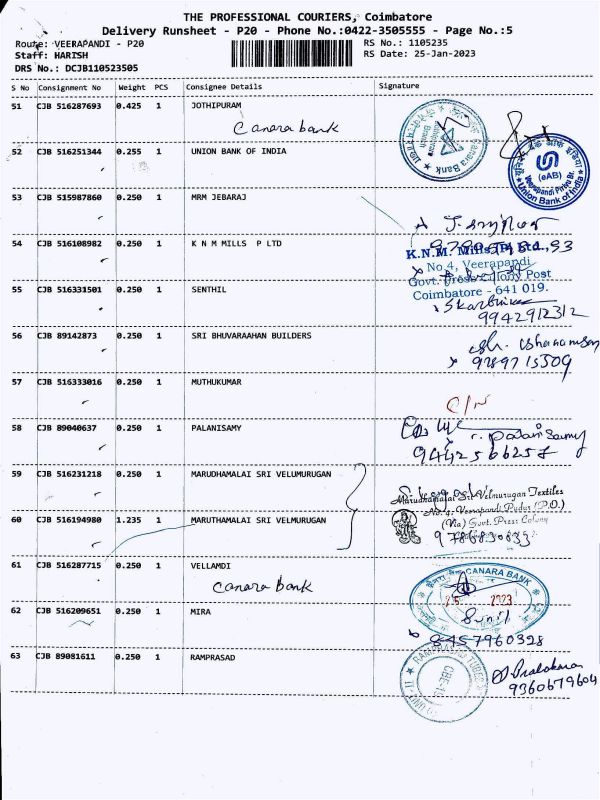 THE PROFESSIONAL COURIERS, Coimbatore
Delivery Runsheet - P20 - Phone No.:0422-3505555 - Page No.:5
Route: VEERAPANDI - P20
RS No.: 1105235
Staff: HARISH
RS Date: 25-Jan-2023
DRS No.: DCJB110523505
S No Consignment No Weight PCS Consignee Details Signature
51 CJB 516287693 0.425 1 JOTHIPURAM
Canara bank
Canara Bank
52 CJB 516251344 0.255 1 UNION BANK OF INDIA
(eAB)
Union Bank of India
53 CJB 515987860 0.250 1 MRM JEBARAJ
54 CJB 516108982 0.250 1 K N M MILLS P LTD
K.N.M. Mills (P) Ltd.,
No.4, Veerapandi
Govt. Press Colony Post
Coimbatore - 641 019.
55 CJB 516331501 0.250 1 SENTHIL
9942912312
56 CJB 89142873 0.250 1 SRI BHUVARAAHAN BUILDERS
9789715509
57 CJB 516333016 0.250 1 MUTHUKUMAR
58 CJB 89040637 0.250 1 PALANISAMY
9442566258
59 CJB 516231218 0.250 1 MARUDHAMALAI SRI VELUMURUGAN
Marudhamalai Sri Velmurugan Textiles
60 CJB 516194980 1.235 1 MARUTHAMALAI SRI VELMURUGAN
No. 9, Veerapandi Pudur (P.O.)
(Via) Govt. Press Colony
61 CJB 516287715 0.250 1 VELLAMDI
Canara bank
CANARA BANK
2023
62 CJB 516209651 0.250 1 MIRA
Sunil
8457960328
63 CJB 89081611 0.250 1 RAMPRASAD
9360679604